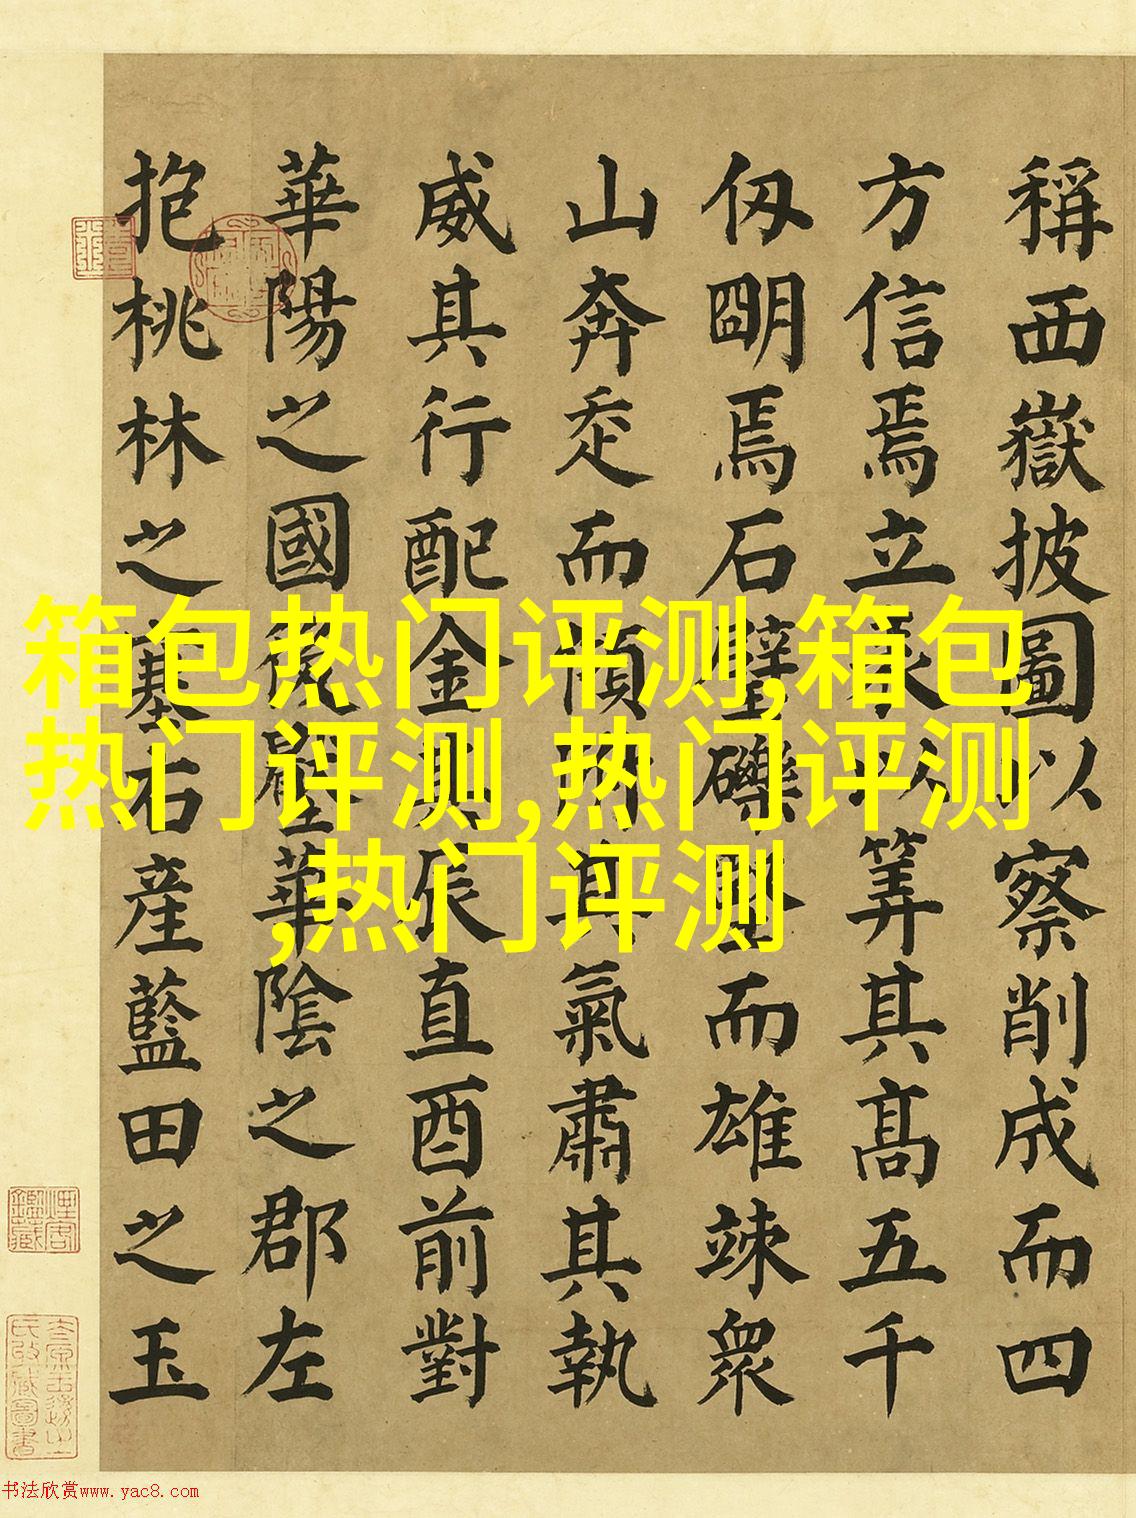 稱西嶽披圖以察削成而四
方信焉立以筭其髙五千
仭朙焉石壁礫而雄竦衆
山奔走而傾其氣肅其執
威其行配金其辰直酉前對
華陽之國後壓華陰之郡左
抱桃林之塞右產藍田之玉
箱包热门评测,箱包
热门评测,热门评测
,热门评测
书法欣赏www.yac8.com